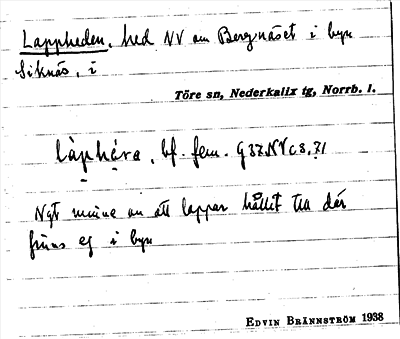 Lappheden, hed NV om Bergnäset i byn
Siknäs, i
Töre sn, Nederkalix tg, Norrb. l.
bf. fem.
Ngt minne av att lappar hållit till där
finns ej i byn
EDVIN BRÄNNSTRÖM 1938